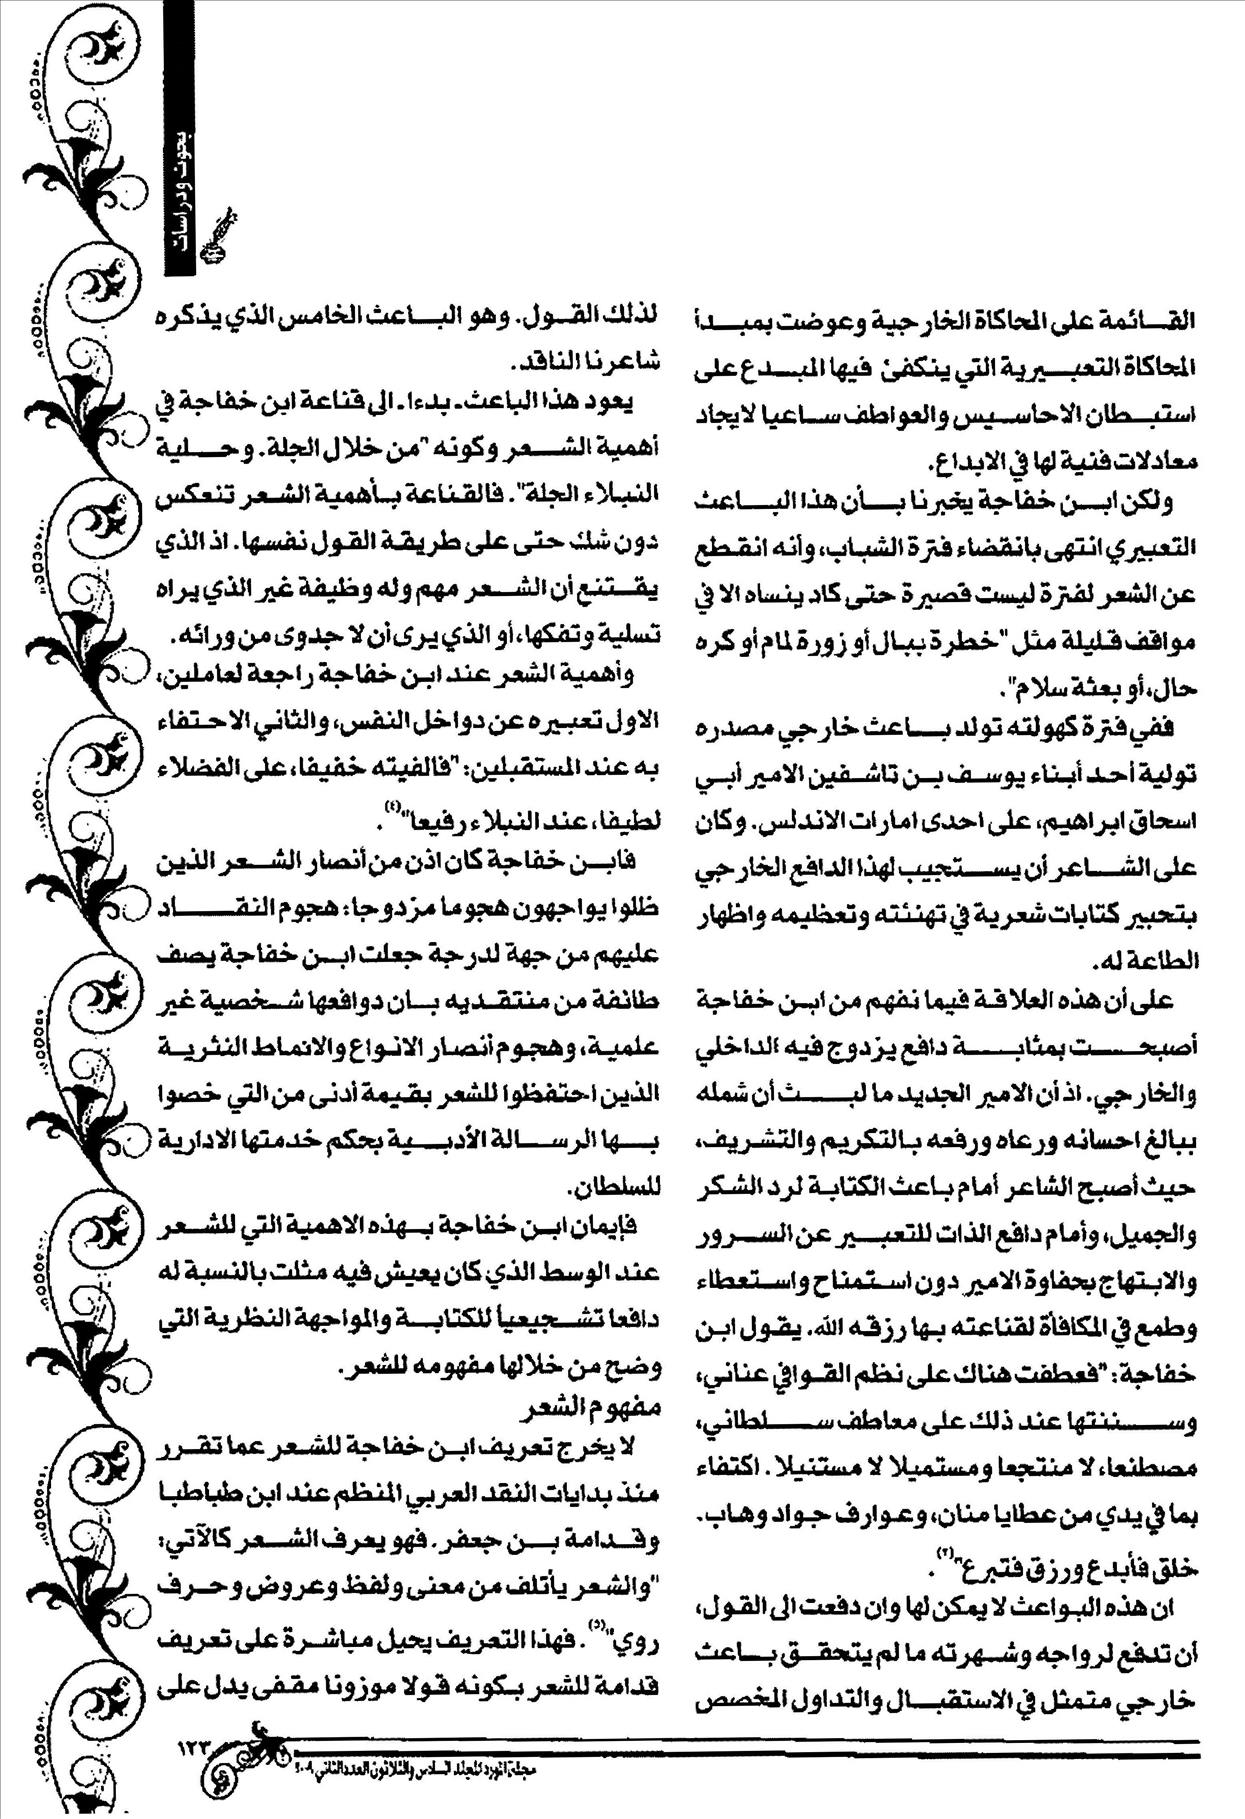 بحوث ودراسات
القائمة على المحاكاة الخارجية وعوضت بمبدأ
المحاكاة التعبيرية التي ينكفئ فيها المبدع على
استبطان الاحاسيس والعواطف ساعيا لايجاد
معادلات فنية لها في الابداع.
ولكن ابن خفاجة يخبرنا بأن هذا الباعث
التعبيري انتهى بانقضاء فترة الشباب، وأنه انقطع
عن الشعر لفترة ليست قصيرة حتى كاد ينساه الا في
مواقف قليلة مثل "خطرة ببال أو زورة لمام أو كره
حال، أو بعثة سلام".
ففي فترة كهولته تولد باعث خارجي مصدره
تولية أحد أبناء يوسف بن تاشفين الامير أبي
اسحاق ابراهيم، على احدى امارات الاندلس. وكان
على الشاعر أن يستجيب لهذا الدافع الخارجي
بتحبير كتابات شعرية في تهنئته وتعظيمه واظهار
الطاعة له.
على أن هذه العلاقة فيما نفهم من ابن خفاجة
أصبحت بمثابة دافع يزدوج فيه الداخلي
والخارجي. اذ أن الامير الجديد ما لبث أن شمله
ببالغ احسانه ورعاه ورفعه بالتكريم والتشريف،
حيث أصبح الشاعر أمام باعث الكتابة لرد الشكر
والجميل، وأمام دافع الذات للتعبير عن السرور
والابتهاج بحفاوة الامير دون استمناح واستعطاء
وطمع في المكافأة لقناعته بها رزقه الله. يقول ابن
خفاجة: "فعطفت هناك على نظم القوافي عناني،
وسننتها عند ذلك على معاطف سلطاني،
مصطنعا، لا منتجعا ومستميلا لا مستنيلا. اكتفاء
بما في يدي من عطايا منان، وعوارف جواد وهاب.
خلق فأبدع ورزق فتبرع"(٣).
ان هذه البواعث لا يمكن لها وان دفعت الى القول،
أن تدفع لرواجه وشهرته ما لم يتحقق باعث
خارجي متمثل في الاستقبال والتداول المخصص
لذلك القول. وهو الباعث الخامس الذي يذكره
شاعرنا الناقد.
يعود هذا الباعث. بدءا. الى قناعة ابن خفاجة في
أهمية الشعر وكونه "من خلال الجلة. وحلية
النبلاء الجلة". فالقناعة بأهمية الشعر تنعكس
دون شك حتى على طريقة القول نفسها. اذ الذي
يقتنع أن الشعر مهم وله وظيفة غير الذي يراه
تسلية وتفكها، أو الذي يرى أن لا جدوى من ورائه.
وأهمية الشعر عند ابن خفاجة راجعة لعاملين،
الاول تعبيره عن دواخل النفس، والثاني الاحتفاء
به عند المستقبلين: "فالفيته خفيفا، على الفضلاء
لطيفا، عند النبلاء رفيعا"(٤).
فابن خفاجة كان اذن من أنصار الشعر الذين
ظلوا يواجهون هجوما مزدوجا: هجوم النقاد
عليهم من جهة لدرجة جعلت ابن خفاجة يصف
طائفة من منتقديه بان دوافعها شخصية غير
علمية، وهجوم أنصار الانواع والانماط النثرية
الذين احتفظوا للشعر بقيمة أدنى من التي خصوا
بها الرسالة الأدبية بحكم خدمتها الادارية
للسلطان.
فإيمان ابن خفاجة بهذه الاهمية التي للشعر
عند الوسط الذي كان يعيش فيه مثلت بالنسبة له
دافعا تشجيعياً للكتابة والمواجهة النظرية التي
وضح من خلالها مفهومه للشعر.
مفهوم الشعر
لا يخرج تعريف ابن خفاجة للشعر عما تقرر
منذ بدايات النقد العربي المنظم عند ابن طباطبا
وقدامة بن جعفر. فهو يعرف الشعر كالآتي:
"والشعر يأتلف من معنى ولفظ وعروض وحرف
روي"(٥). فهذا التعريف يحيل مباشرة على تعريف
قدامة للشعر بكونه قولا موزونا مقفى يدل على
١٢٣
مجلة المورد المجلد السادس والثلاثون العدد الثاني ٢٠٠٩